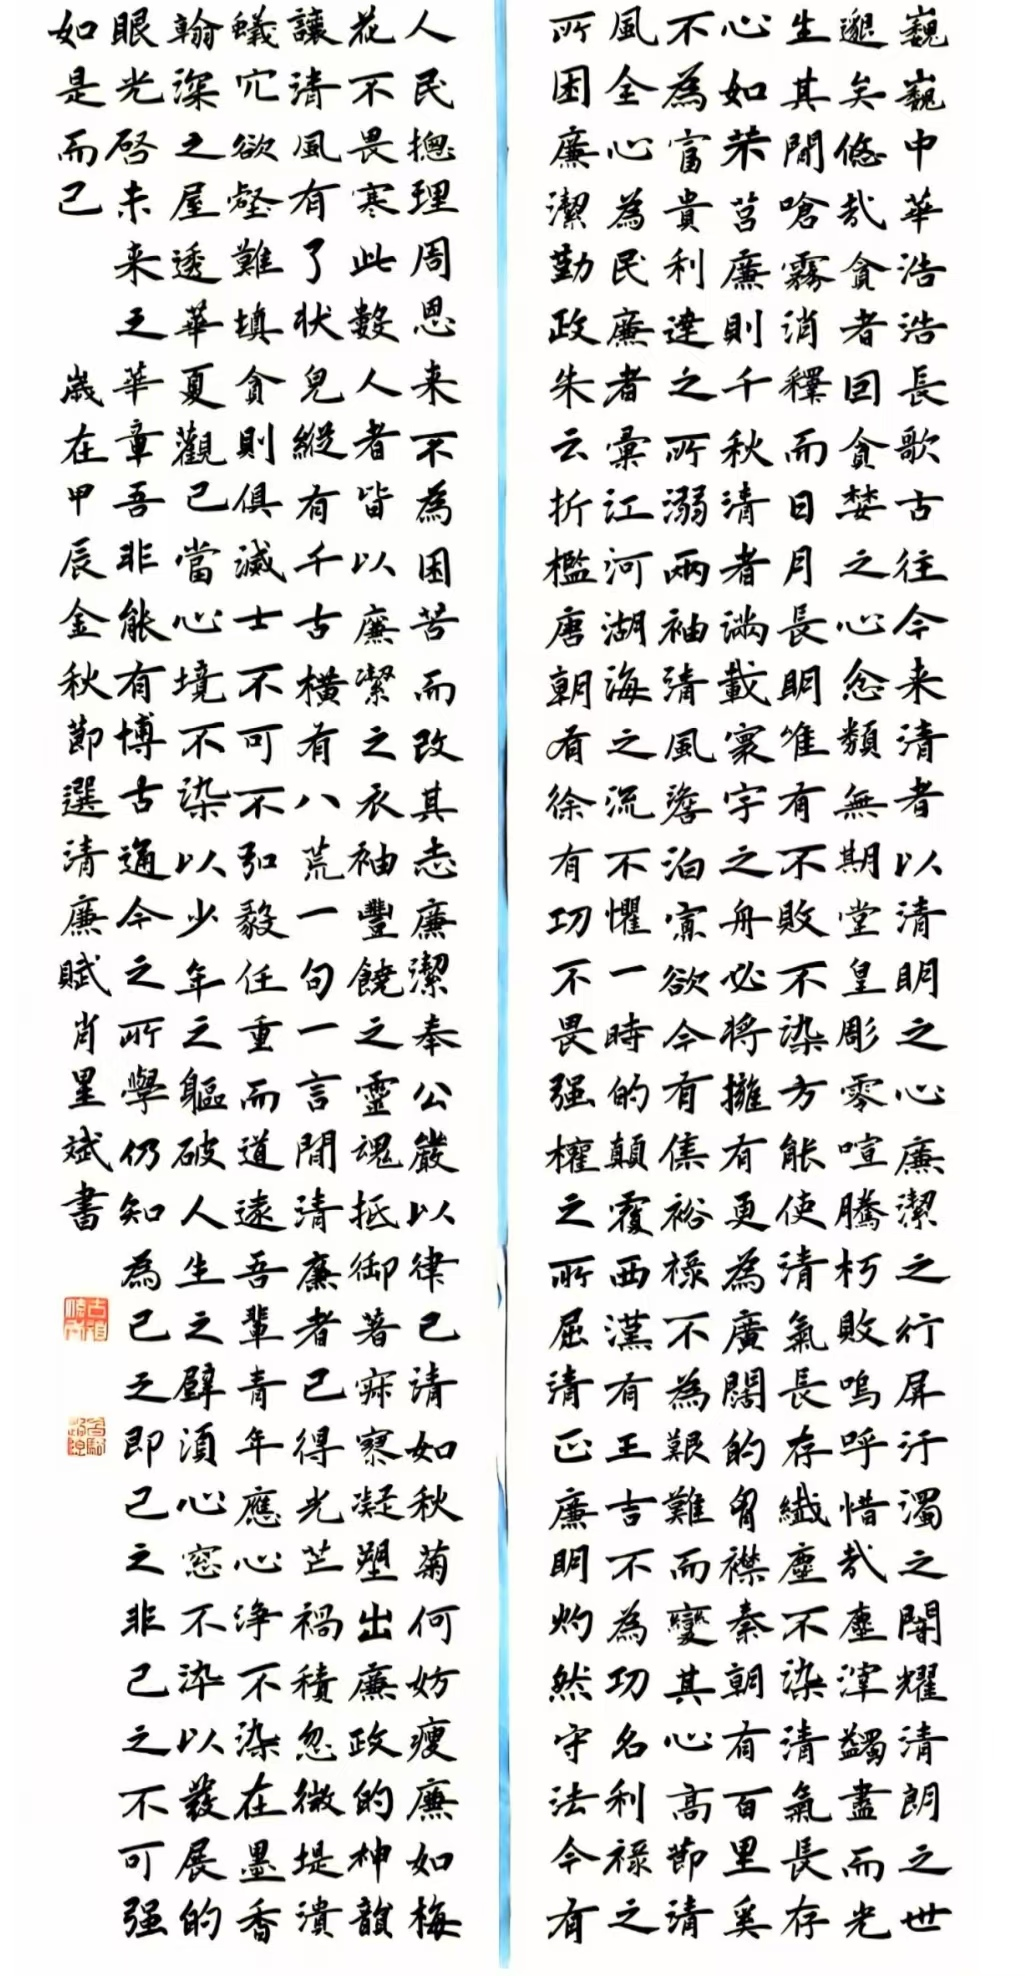 巍巍中華浩浩長歌古往今来清者以清明之心廉潔之行屏汙濁之闇耀清朗之世
邈矣悠哉貪者回貪婪之心忿類無期堂皇彫零喧騰朽敗嗚呼惜哉塵滓蠲盡而光
生其間嗆霧消釋而日月長明唯有不敗不染方能使清氣長存纎塵不染清氣長存
心如荣莒廉則千秋清者満載寰宇之舟必将擁有更為廣闊的胷襟秦朝有百里奚
不為富貴利達之所溺兩袖清風澹泊寡欲今有焦裕禄不為艱難而變其心高節清
風全心為民廉者彙江河湖海之流不懼一時的顛覆西漢有王吉不為功名利禄之
所困廉潔勤政朱云折檻唐朝有徐有功不畏强權之所屈清正廉明灼然守法今有
人民摠理周恩来不為困苦而改其志廉潔奉公嚴以律己清如秋菊何妨瘦廉如梅
花不畏寒此數人者皆以廉潔之衣袖豐饒之靈魂抵御著寂寥凝塑出廉政的神韻
讓清風有了状皃縱有千古橫有八荒一句一言間清廉者已得光芒禍積忽微堤潰
蟻穴欲壑難填貪則俱滅士不可不弘毅任重而道遠吾輩青年應心浄不染在墨香
翰深之屋透華夏觀己當心境不染以少年之軀破人生之壁須心窓不染以發展的
眼光啓未来之華章吾非能有博古通今之所學仍知為己之即己之非己之不可强
如是而已
歲在甲辰金秋節選清廉賦肖里斌書